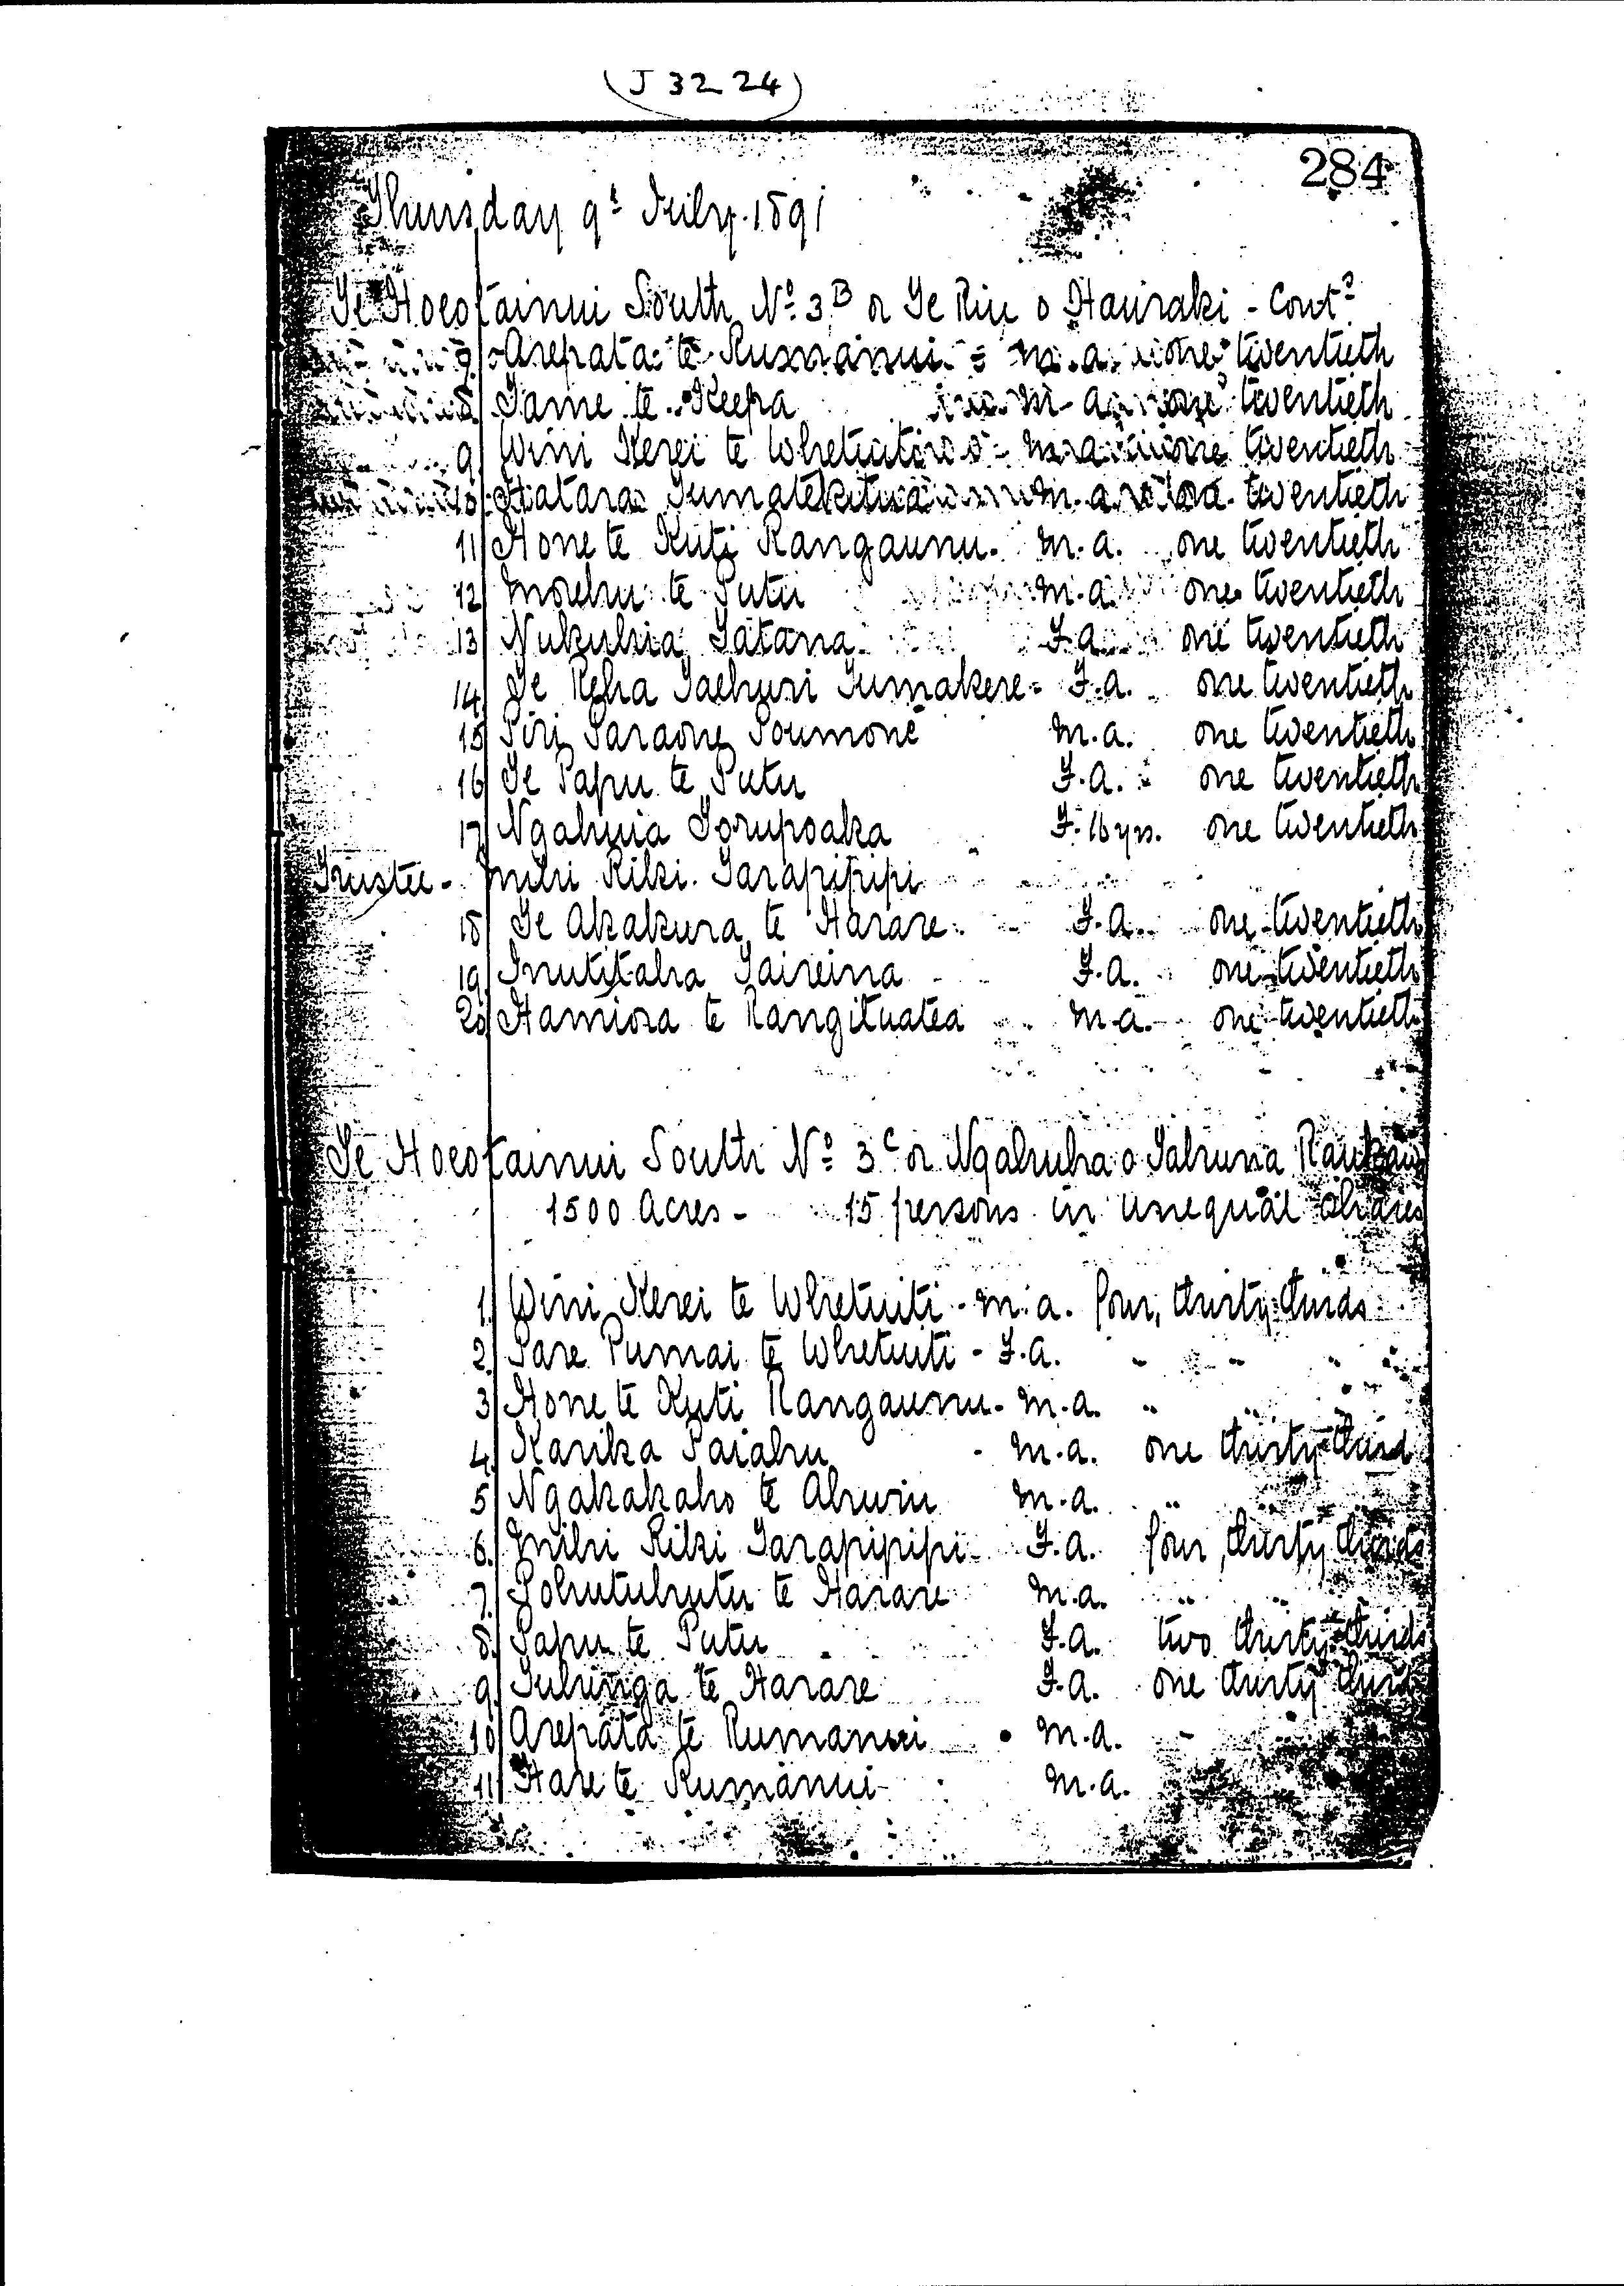 (J 32 24)
284
Thursday 9th July 1891
Te Hoeotainui South No. 3B or Te Riu o Hauraki - Contd
7 Arepata te Rumanui - m.a. one twentieth
8 Tame te Keepa m.a. one twentieth
9 Wini Kerei te Whetuiti m.a. one twentieth
10 Hatara m.a. one twentieth
11 Hone te Kuti Rangaunu. m.a. one twentieth
12 Moehu te Putu m.a. one twentieth
13 Nukuhia Tatana F.a. one twentieth
14 Te Reha Taehuri Tumakere - F.a. one twentieth
15 Piri Paraone Poumone m.a. one twentieth
16 Te Papu te Putu F.a. one twentieth
17 Ngahuia Torupoaka F. 16 yrs. one twentieth
Trustee - Mihi Riki Tarapipipi
18 Te Akakura te Harare F.a. one twentieth
19 Inutitaha Taireina F.a. one twentieth
20 Hamiora te Rangituatea m.a. one twentieth
Te Hoeotainui South No. 3C or Ngahuha o Tahuna
1500 Acres - 15 persons in unequal shares
1. Wini Kerei te Whetuiti - m.a. four, thirty thirds
2. Pare Pumai te Whetuiti - F.a. " " "
3 Hone te Kuti Rangaunu - m.a. " " "
4. Karika Paiahu - m.a. one thirty-third
5 Ngakakaho te Ahuriu m.a. "
6. Mihi Riki Tarapipipi - F.a. four, thirty thirds
7. Pohutuhutu te Harare m.a. " "
8. Papu te Putu F.a. two thirty-thirds
9. Tuhinga te Harare F.a. one thirty third
10 Arepata te Rumanui m.a. -
11. Hare te Rumanui - m.a.